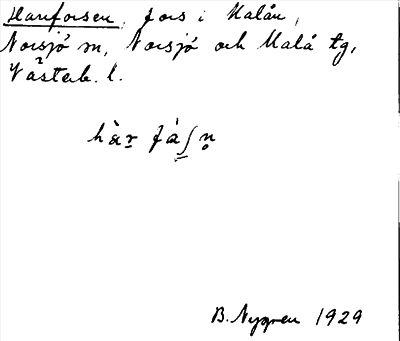 Harrforsen, fors i Malån,
Norsjö sn, Norsjö och Malå tg,
Västerb. l.
B. Nygren 1929